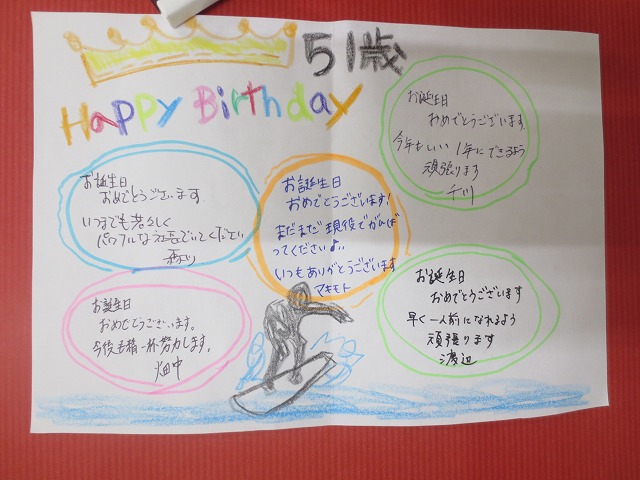 51歳
Happy Birthday
お誕生日
おめでとうございます.
今年もいい1年にできるよう
頑張ります
お誕生日
おめでとうございます.
いつまでも若々しく
パワフルな社長でいてください
お誕生日
おめでとうございます!
まだまだ現役でがんば
ってください♪
いつもありがとうございます
マキモト
お誕生日
おめでとうございます。
今後も精一杯努力します。
畑中
お誕生日
おめでとうございます
早く一人前になれるよう
頑張ります
渡辺